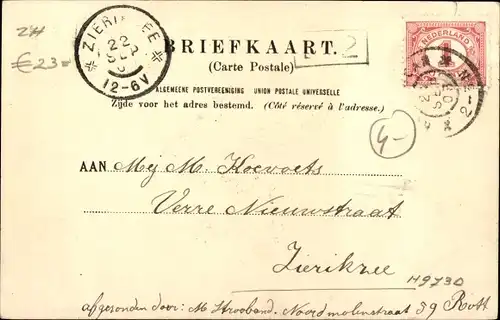 ZH
€ 23=
ZIERIKZEE
22 SEP
12-6V
BRIEFKAART.
(Carte Postale)
2
NEDERLAND
1
ALGEMEENE POSTVEREENIGING UNION POSTALE UNIVERSELLE
Zijde voor het adres bestemd. (Côté réservé à l'adresse.)
4-
AAN Mej M. Koevoets
Verre Nieuwstraat
Zierikzee
H9730
afgezonden door: M Strooband. Noordmolenstraat 39 Rott